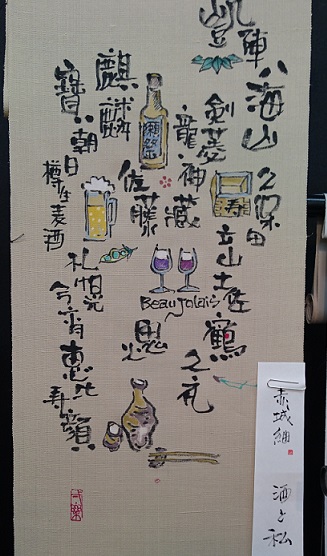 凱陣
八海山
久保田
剣菱
寿
立山
土佐鶴
龍神
蔵
獺祭
佐藤
Beaujolais
麒麟
寶
朝日
樽生麦酒
札幌
今宵
恵比
寿顔
赤城紬
酒と私